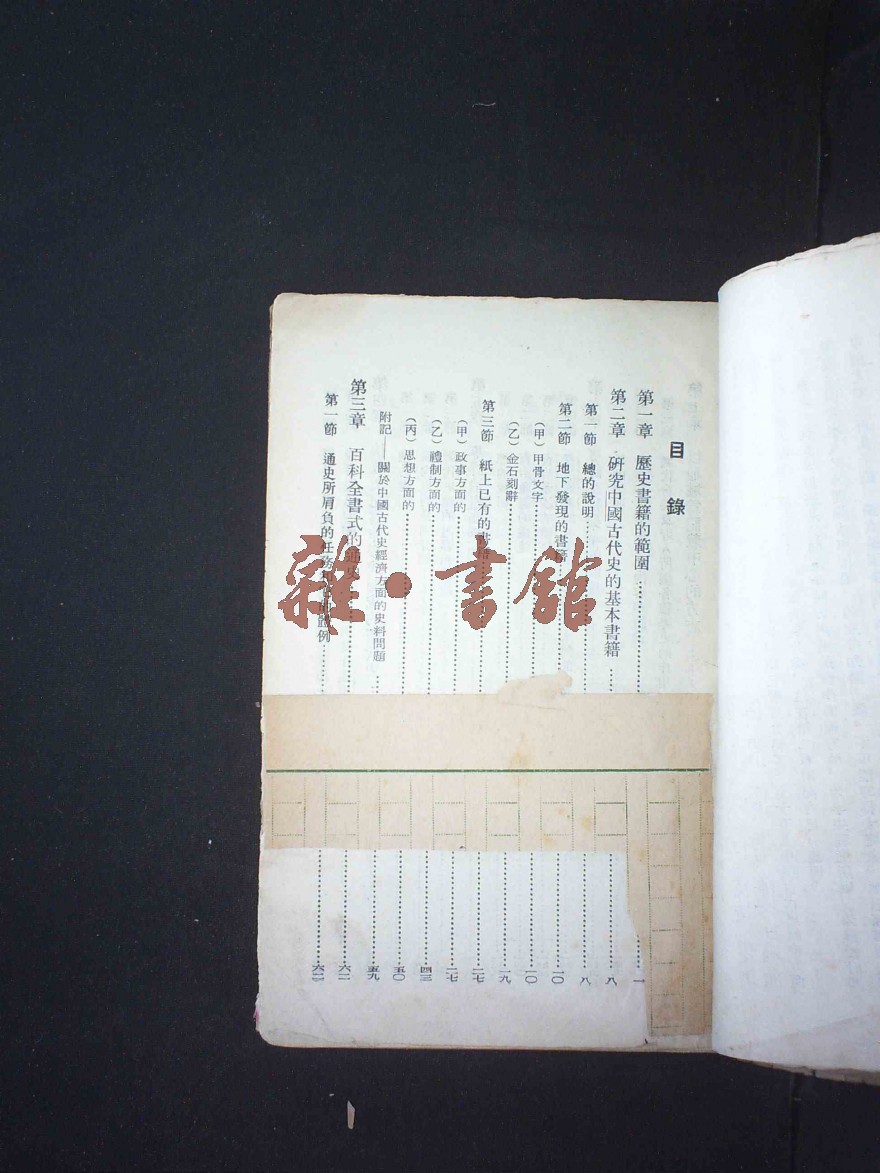 目錄
第一章 歷史書籍的範圍……一
第二章 研究中國古代史的基本書籍……八
第一節 總的說明……八
第二節 地下發現的書籍……一〇
(甲)甲骨文字……一〇
(乙)金石刻辭……一九
第三節 紙上已有的書籍……二七
(甲)政事方面的……二七
(乙)禮制方面的……四三
(丙)思想方面的……五〇
附記——關於中國古代史經濟方面的史料問題……五九
第三章 百科全書式的通史……六二
第一節 通史所肩負的任務……體例……六二
雜·書館